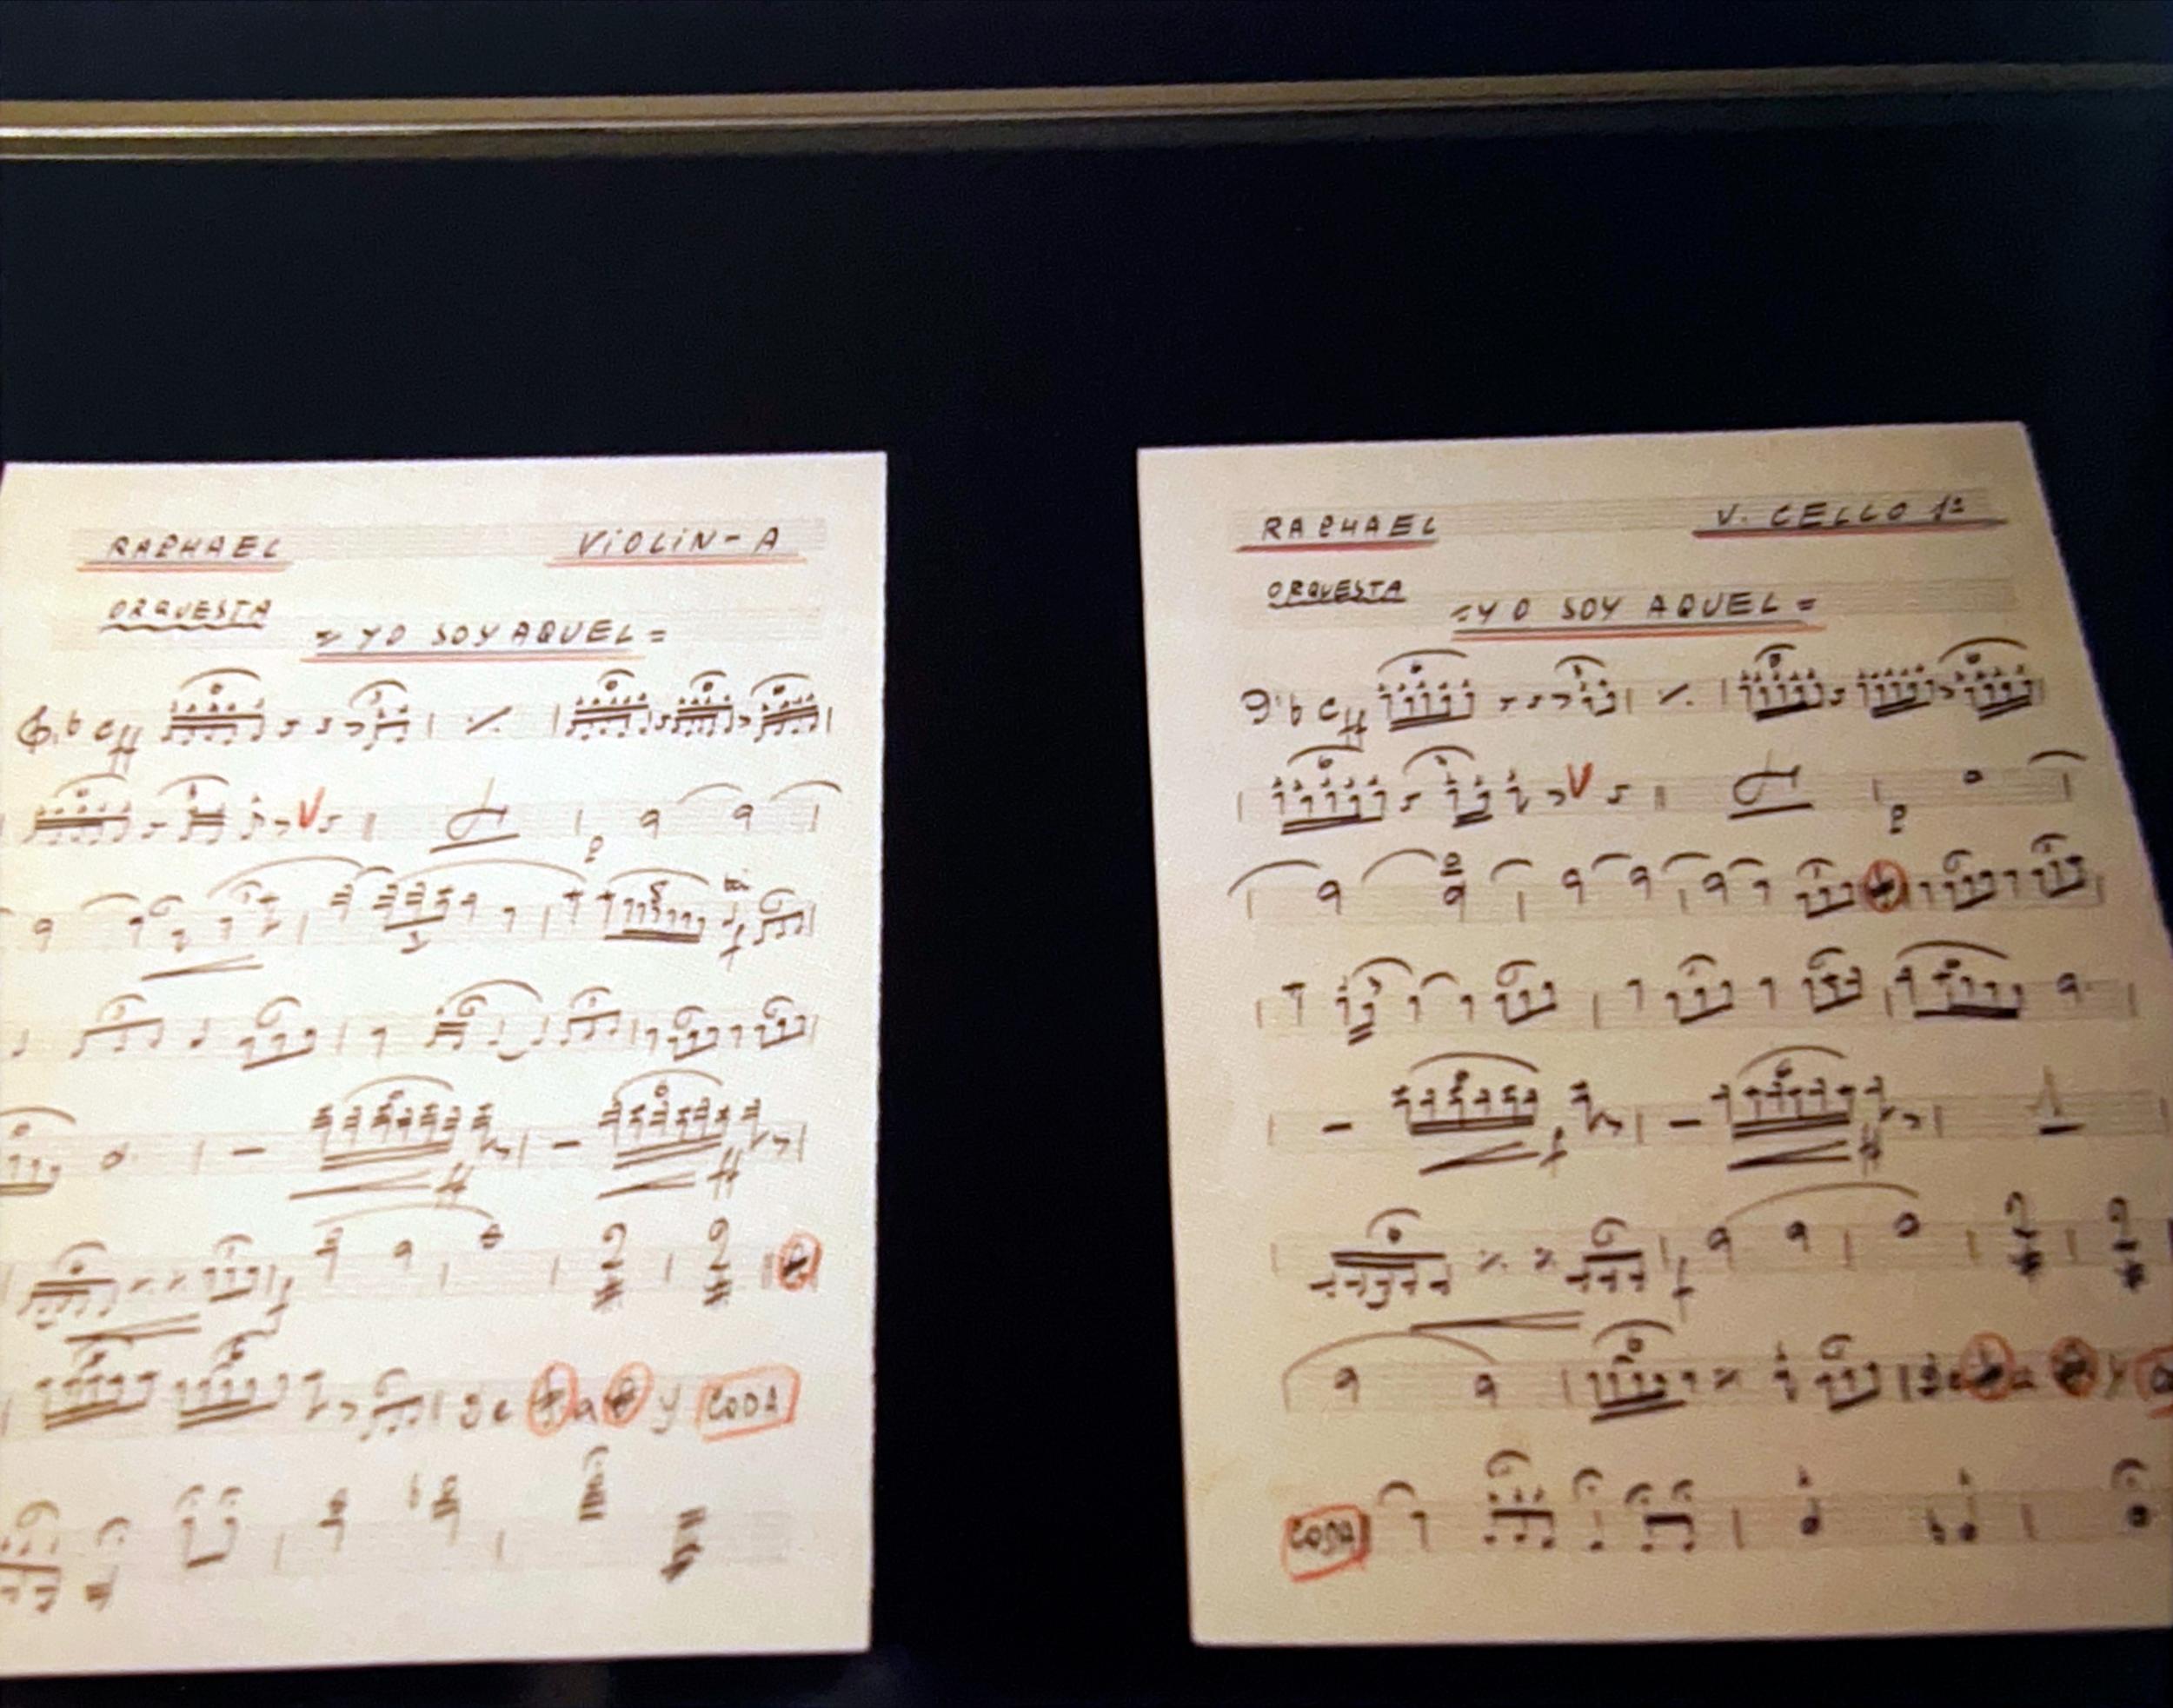 RAPHAEL VIOLIN-A
ORQUESTA
= YO SOY AQUEL =
CODA
RAPHAEL V. CELLO 1º
ORQUESTA
= YO SOY AQUEL =
CODA